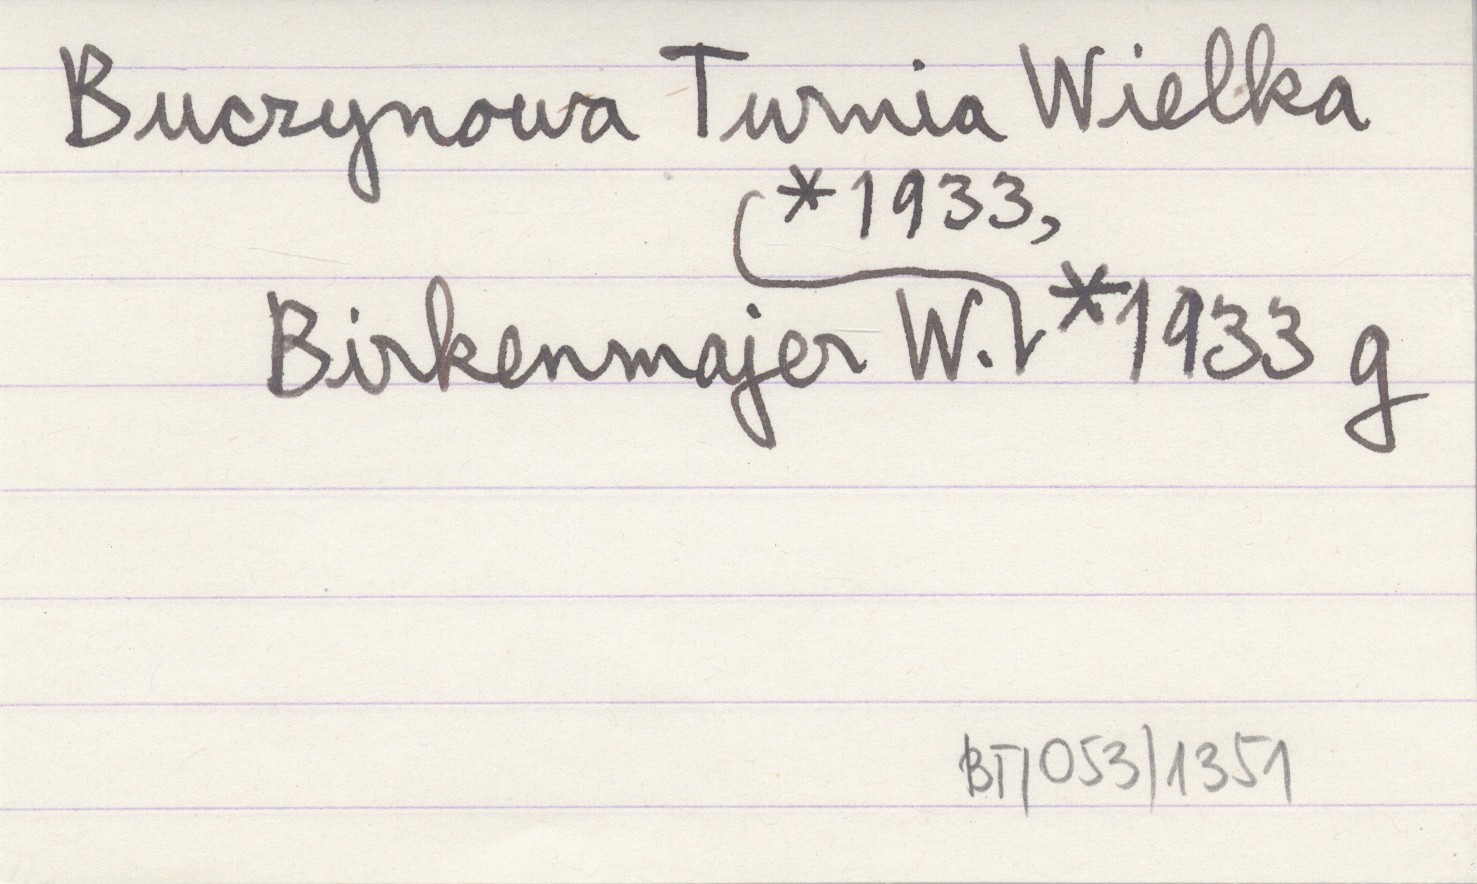 Buczynowa Turnia Wielka
*1933,
Birkenmajer W. *1933 g
BT/053/1351